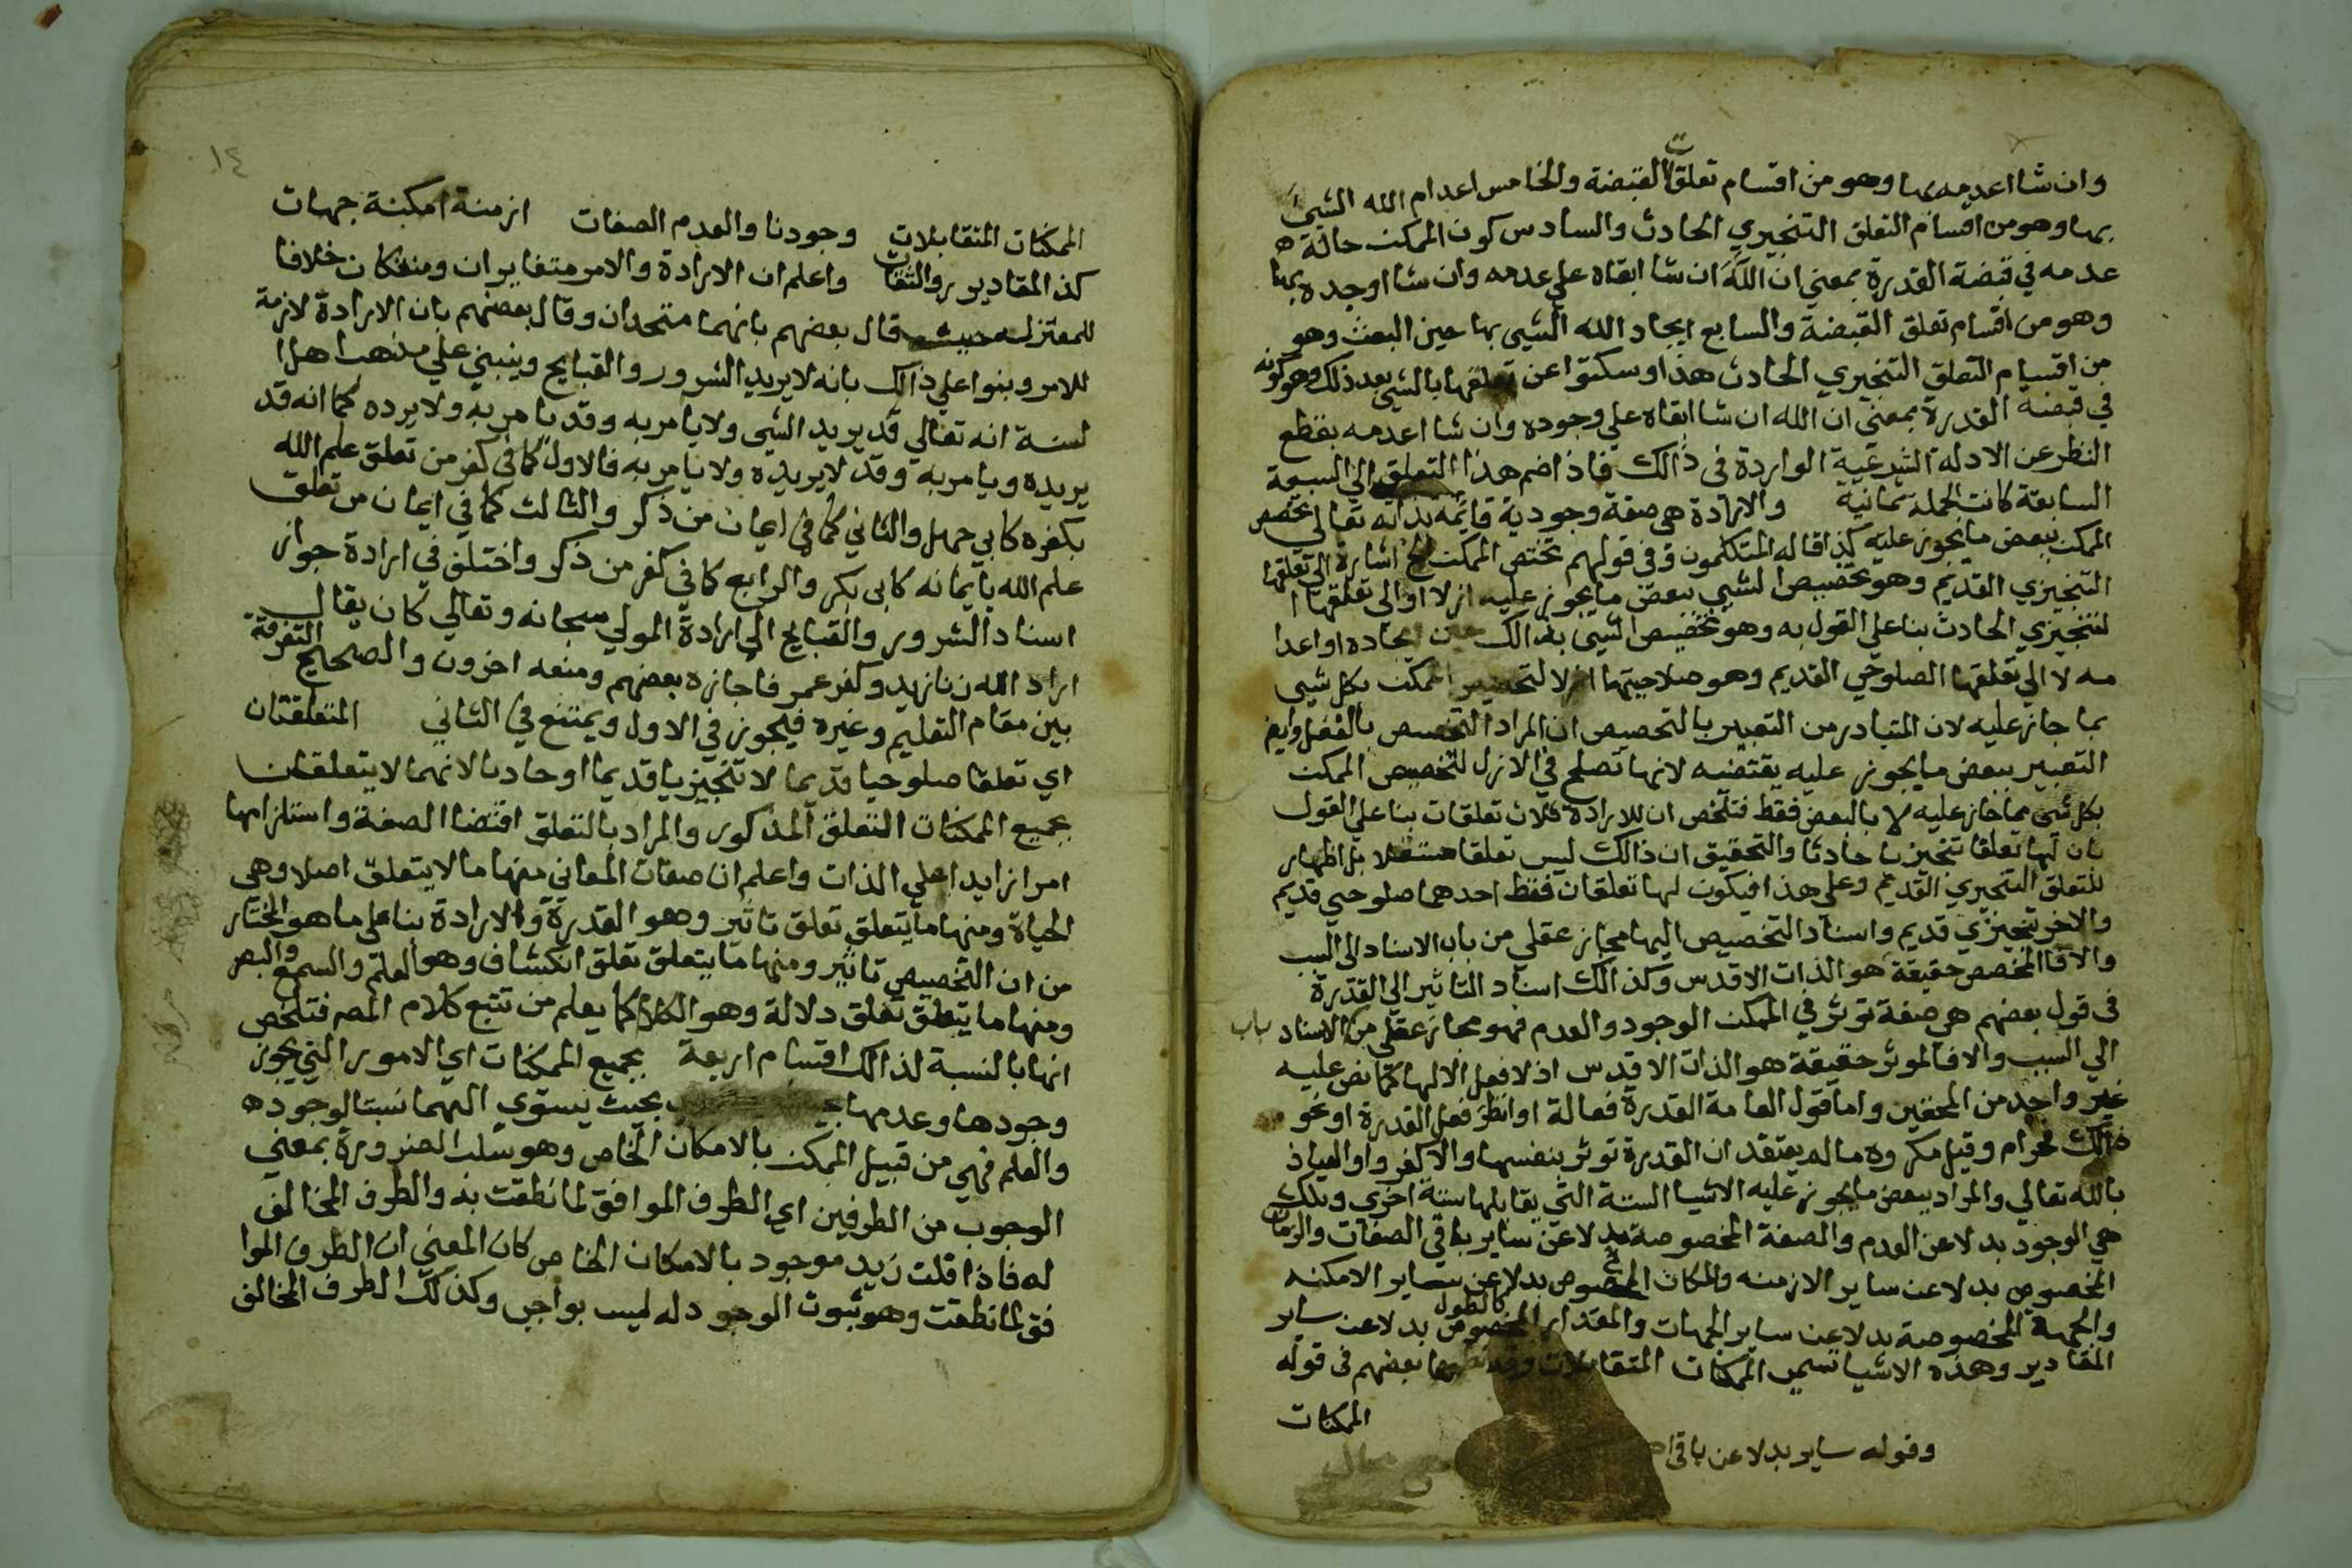 وان شا اعدمه بها وهو من اقسام تعلق القبضة والخامس اعدام الله الشيئ
بها وهو من اقسام التعلق التنجيزي الحادث والسادس كون الممكن حالة
عدمه في قبضة القدرة بمعني ان الله ان شا ابقاه علي عدمه وان شا اوجده بها
وهو من اقسام تعلق القبضة والسابع ايجاد الله الشيى بها حين البعث وهو
من اقسام التعلق التنجيزي الحادث هذا وسكتوا عن تعلقها بالشيى بعد ذلك وهو كونه
في قبضة القدرة بمعني ان الله ان شا ابقاه علي وجوده وان شا اعدمه بقطع
النظر عن الادلة الشرعية الواردة في ذالك فاذا ضم هذا التعلق الي السبعة
السابقة كانت الجملة ثمانية والارادة هي صفة وجودية قايمه بذاته تعالي تخصص
الممكن ببعض ما يجوز عليه كذا قاله المتكلمون وفي قولهم تختص الممكن الخ اشارة الي تعلقها
التنجيزي القديم وهو تخصيص الشيى ببعض ما يجوز عليه ازلا او الي تعلقها ا
لتنجيزي الحادث بنا علي القول به وهو تخصيص الشيى بذالك حين ايجاده او اعدا
مه لا الي تعلقها الصلوحي القديم وهو صلاحيتها ازلا لتخصيص الممكن بكل شيى
بما جاز عليه لان المتبادر من التعبير بالتخصيص ان المراد التخصيص بالفعل وايض
التعبير ببعض ما يجوز عليه يقتضيه لانها تصلح في الازل لتخصيص الممكن
بكل شيى مما جاز عليه لا بالبعض فقط فتلخص ان للارادة ثلاث تعلقات بنا علي القول
بان لها تعلقا تنجيزيا حادثا والتحقيق ان ذالك ليس تعلقا مستقلا بل اظهار
للتعلق التنجيزي القديم وعلي هذا فيكون لها تعلقان فقط احدهما صلوحي قديم
والاخر تنجيزي قديم واسناد التخصيص اليها مجاز عقلي من باب الاسناد الي السبب
والا فالمخصص حقيقة هو الذات الاقدس وكذالك اسناد التاثير الي القدرة
في قول بعضهم هي صفة توثر في الممكن الوجود والعدم فهو مجاز عقلي من باب الاسناد
الي السبب والا فالموثر حقيقة هو الذات الاقدس اذ لا فعل الا لها كما نص عليه
غير واحد من المحققين واما قول العامة القدرة فعالة او انظر فعل القدرة او نحو
ذالك فحرام وقيل مكروه ما لم يعتقد ان القدرة توثر بنفسها والا كفر والعياذ
بالله تعالي والمراد ببعض ما يجوز عليه الاشيا الستة التي يقابلها ستة اخري وتلك
هي الوجود بدلا عن العدم والصفة المخصوصة بدلا عن ساير باقي الصفات والزمان
المخصوص بدلا عن ساير الازمنه والمكان المخصوص بدلا عن ساير الامكنه
والجهة المخصوصة بدلا عن ساير الجهات والمقدار المخصوص كالطول بدلا عن ساير
المقادير وهذه الاشيا تسمي الممكنات المتقابلات وقد نظمها بعضهم في قوله
الممكنات
وقوله ساير بدلا عن باقي
١٤
الممكنات المتقابلات وجودنا والعدم الصفات ازمنة امكنة جهات
كذ المقادير روالثقات واعلم ان الارادة والامر متغايران ومنفكان خلافا
للمعتزله قال بعضهم بانهما متحدان وقال بعضهم بان الارادة لازمة
للامر وبنوا علي ذالك بانه لا يريد الشرور والقبايح وينبني علي مذهب اهل ا
لسنة انه تعالي قد يريد الشى ولا يامر به وقد يامر به ولا يرده كما انه قد
يريده ويامر به وقد لا يريده ولا يامر به فالاول كما في كفر من تعلق علم الله
بكفره كابي جهل والثاني كما في ايمان من ذكر والثالث كما في ايمان من تعلق
علم الله بايمانه كابي بكر والرابع كما في كفر من ذكر واختلف في ارادة جواز
اسناد الشرور والقبايح الي ارادة المولي سبحانه وتعالي كان يقال
اراد الله زنا زيد وكفر عمر فاجازه بعضهم ومنعه اخرون والصحيح التفرقة
بين مقام التعليم وغيره فيجوز في الاول ويمتنع في الثاني المتعلقتان
اي تعلقا صلوحيا قديما لا تنجيزيا قديما او حادثا لانهما لا يتعلقان
بجميع الممكنات التعلق المذكور والمراد بالتعلق اقتضا الصفة واستلزامها
امرا زايدا علي الذات واعلم ان صفات المعاني منها ما لا يتعلق اصلا وهي
الحياة ومنها ما يتعلق تعلق تاثير وهو القدرة والارادة بنا علي ما هو المختار
من ان التخصيص تاثير ومنها ما يتعلق تعلق انكشاف وهو العلم والسمع والبصر
ومنها ما يتعلق تعلق دلالة وهو الكلام كما يعلم من تتبع كلام المصه فتلخص
انها بالنسبة لذالك اقسام اربعة بجميع الممكنات اي الامور التي يجوز
وجودها وعدمها بحيث يستوي اليهما نسبتا لوجوده
والعلم فهي من قبيل الممكن بالامكان الخاص وهو سلب الضرورة بمعني
الوجوب من الطرفين اي الطرف الموافق لما نطقت به والطرف المخالف
له فاذا قلت زيد موجود بالامكان الخاص كان المعني ان الطرف الموا
فق لما نطقت وهو ثبوت الوجود له ليس بواجب وكذلك الطرف المخالف